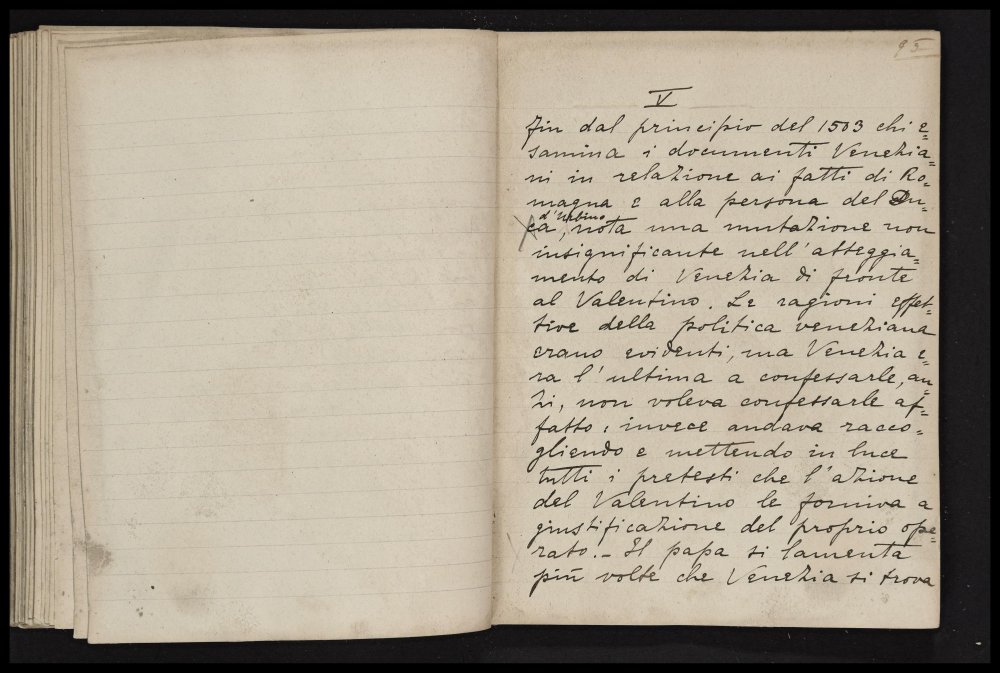 95
V
Fin dal principio del 1503 chi e=
samina i documenti Venezia=
ni in relazione ai fatti di Ro=
magna e alla persona del Du=
d'Urbino
ca, nota una mutazione non
insignificante nell'atteggia=
mento di Venezia di fronte
al Valentino. Le ragioni effet=
tive della politica veneziana
erano evidenti, ma Venezia e=
ra l'ultima a confessarle, an=
zi, non voleva confessarle af=
fatto; invece andava racco=
gliendo e mettendo in luce
tutti i pretesti che l'azione
del Valentino le forniva a
giustificazione del proprio ope=
rato. – Il papa si lamenta
più volte che Venezia si trova